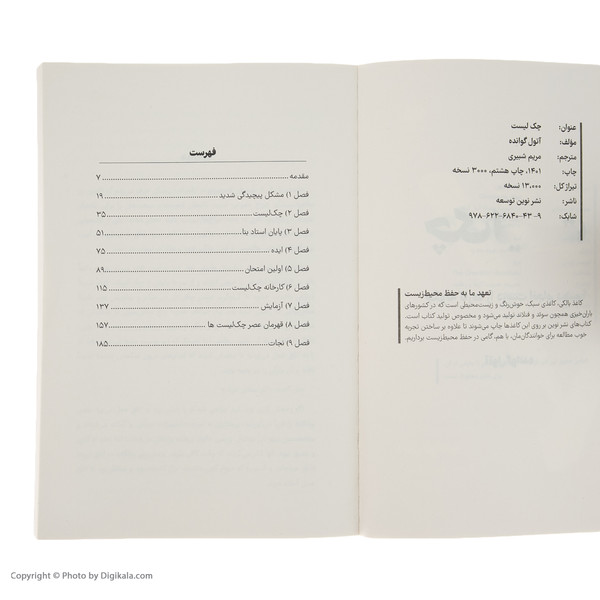 عنوان: چک لیست
مؤلف: آتول گوانده
مترجم: مریم شبیری
چاپ: ۱۴۰۱، چاپ هشتم، ۳۰۰۰ نسخه
تیراژ کل: ۱۳،۰۰۰ نسخه
ناشر: نشر نوین توسعه
شابک: ۹-۴۳-۶۸۴۰-۶۲۲-۹۷۸
تعهد ما به حفظ محیط‌زیست
کاغذ بالکی، کاغذی سبک، خوش‌رنگ و زیست‌محیطی است که در کشورهای
باران‌خیزی همچون سوئد و فنلاند تولید می‌شود و مخصوص تولید کتاب است.
کتاب‌های نشر نوین بر روی این کاغذها چاپ می‌شوند تا علاوه بر ساختن تجربه
خوب مطالعه برای خوانندگان‌مان، با هم، گامی در حفظ محیط‌زیست برداریم.
فهرست
مقدمه ۷
فصل ۱) مشکل پیچیدگی شدید ۱۹
فصل ۲) چک‌لیست ۳۵
فصل ۳) پایان استاد بنا ۵۱
فصل ۴) ایده ۷۵
فصل ۵) اولین امتحان ۸۹
فصل ۶) کارخانه چک‌لیست ۱۱۵
فصل ۷) آزمایش ۱۳۷
فصل ۸) قهرمان عصر چک‌لیست ها ۱۵۷
فصل ۹) نجات ۱۸۵
Copyright © Photo by Digikala.com